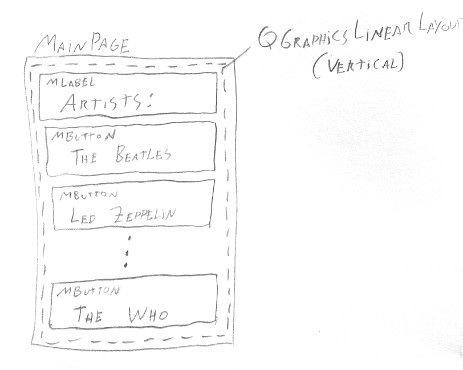 MAINPAGE
QGRAPHICSLINEARLAYOUT
(VERTICAL)
MLABEL
ARTISTS:
MBUTTON
THE BEATLES
MBUTTON
LED ZEPPELIN
MBUTTON
THE WHO